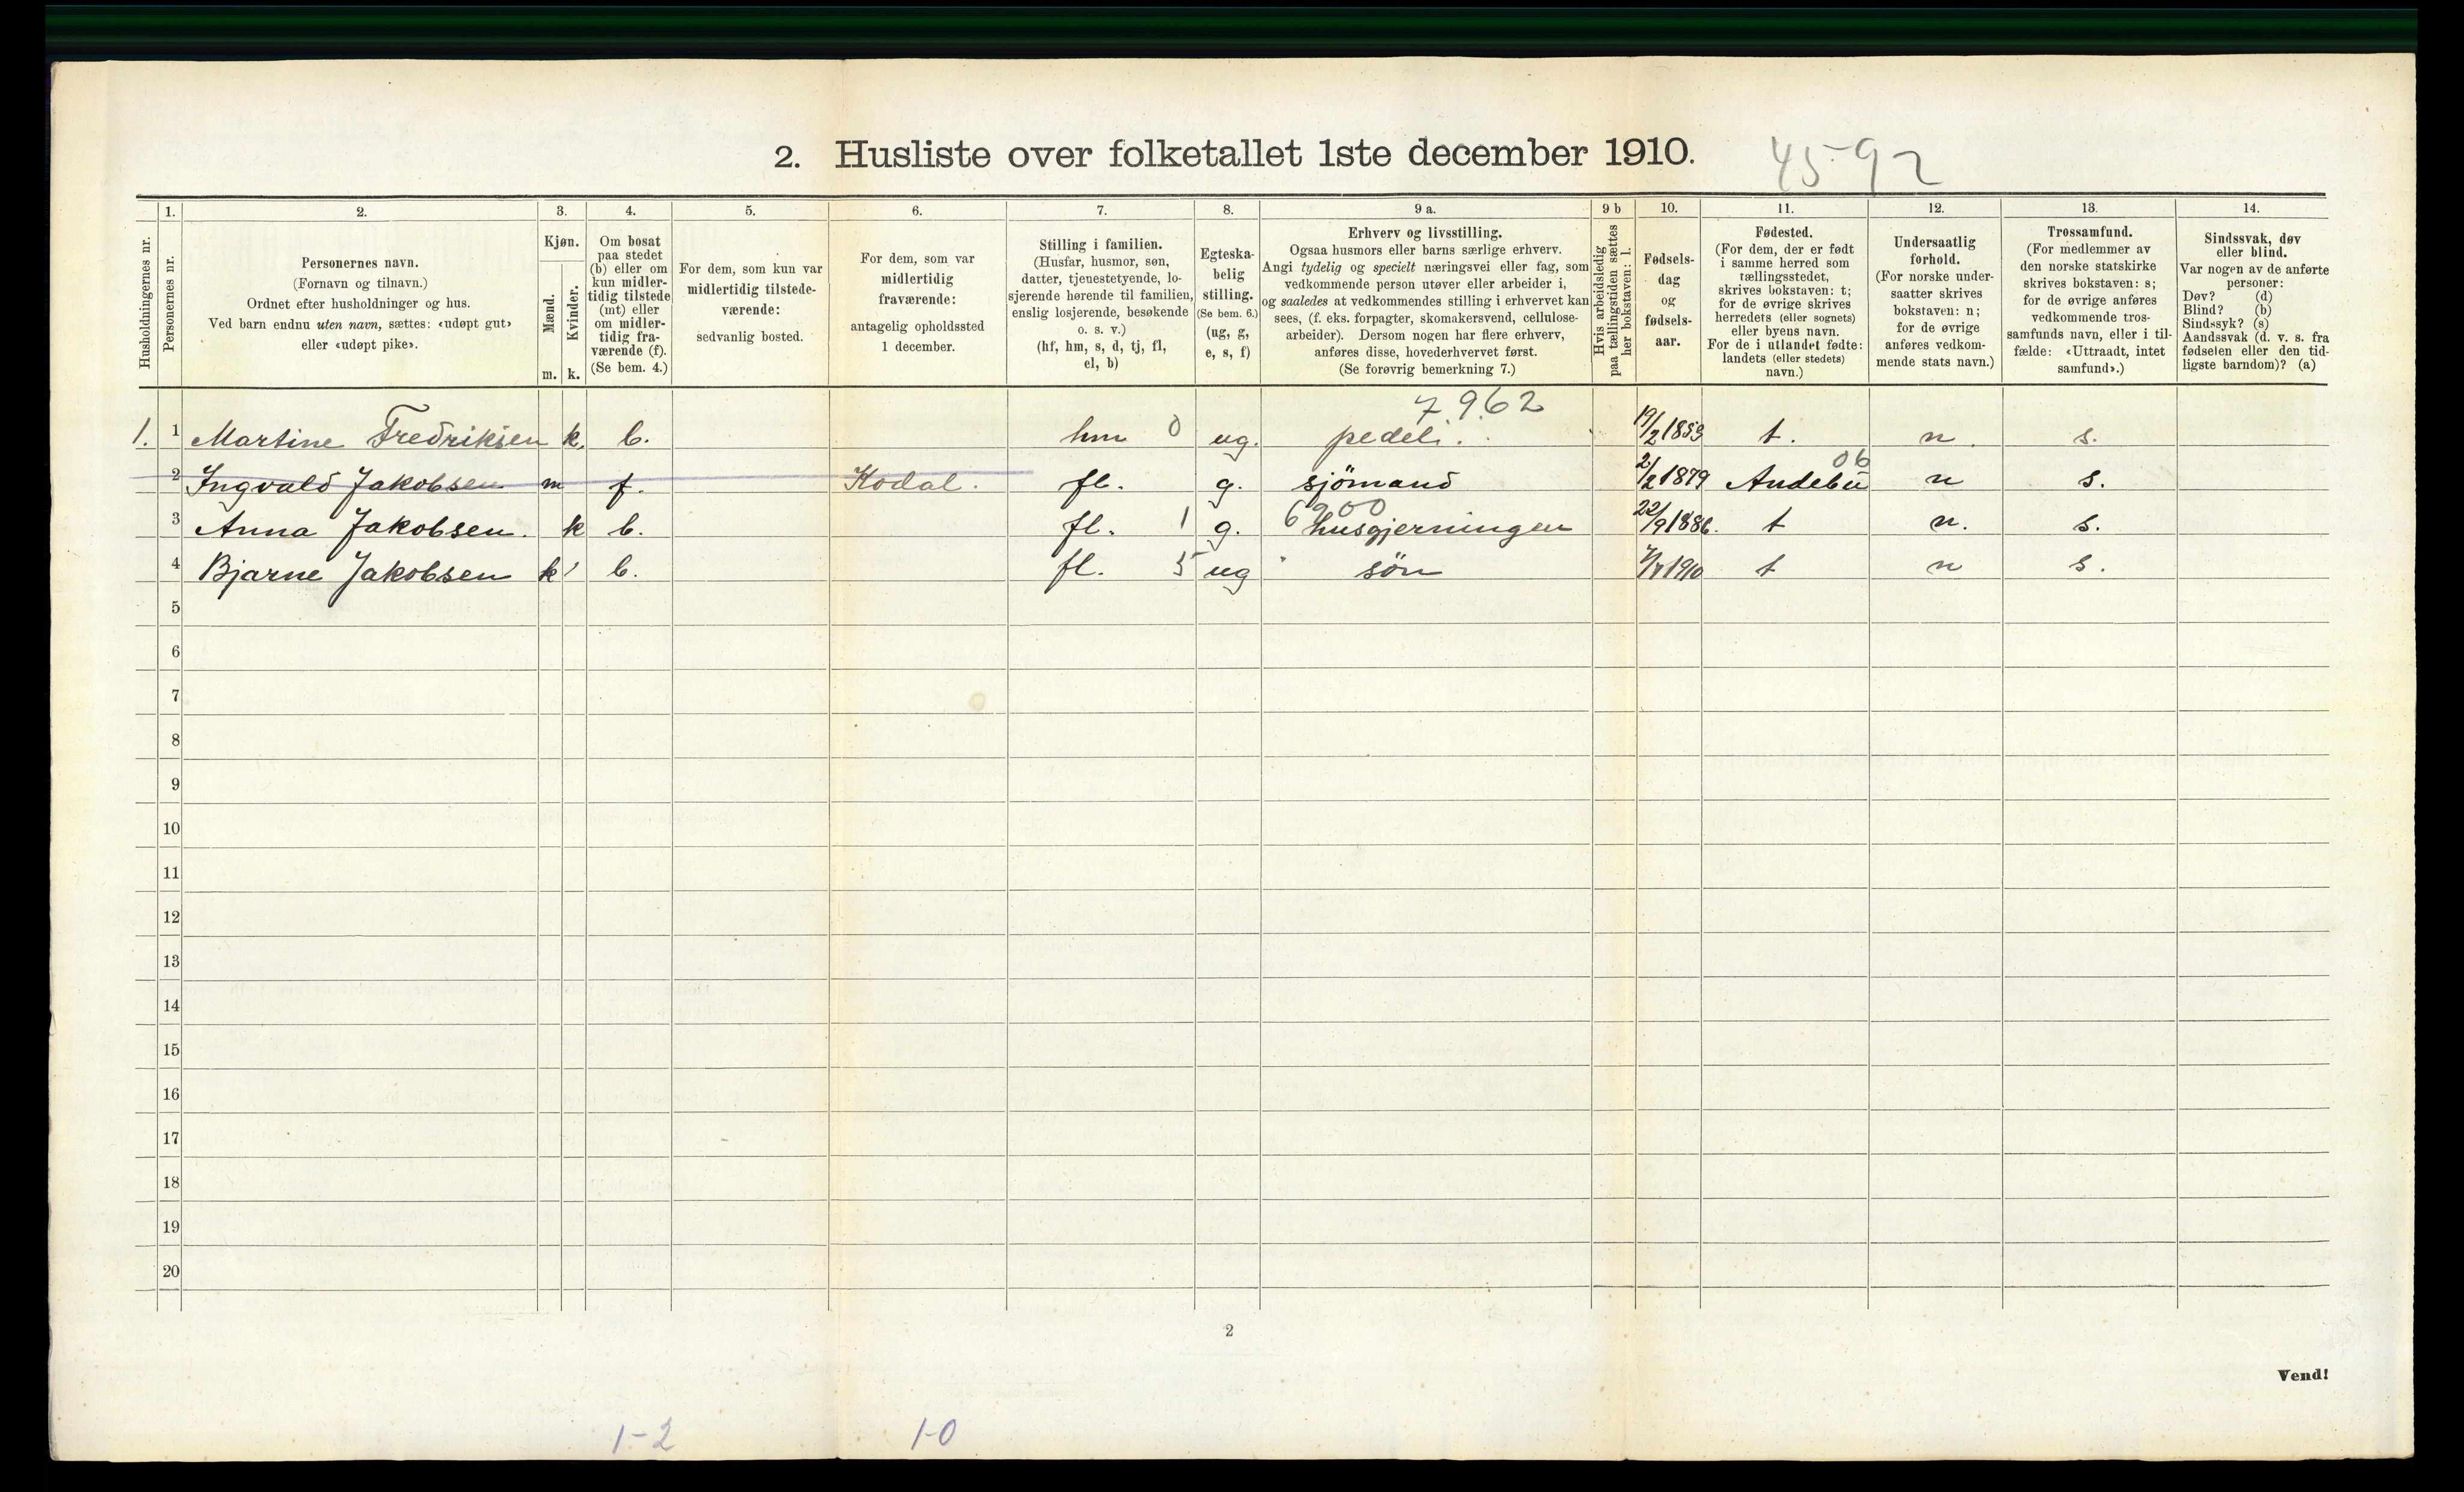 2. Husliste over folketallet 1ste december 1910.
45-92
Husholdningernes nr.
1.
Personernes nr.
2.
Personernes navn.
(Fornavn og tilnavn.)
Ordnet efter husholdninger og hus.
Ved barn endnu uten navn, sættes: «udøpt gut»
eller «udøpt pike».
3.
Kjøn.
Mænd.
Kvinder.
m. k.
4.
Om bosat
paa stedet
(b) eller om
kun midler-
tidig tilstede
(mt) eller
om midler-
tidig fra-
værende (f).
(Se bem. 4.)
5.
For dem, som kun var
midlertidig tilstede-
værende:
sedvanlig bosted.
6.
For dem, som var
midlertidig
fraværende:
antagelig opholdssted
1 december.
7.
Stilling i familien.
(Husfar, husmor, søn,
datter, tjenestetyende, lo-
sjerende hørende til familien,
enslig losjerende, besøkende
o. s. v.)
(hf, hm, s, d, tj, fl,
el, b)
8.
Egteska-
belig
stilling.
(Se bem. 6.)
(ug, g,
e, s, f)
9 a.
Erhverv og livsstilling.
Ogsaa husmors eller barns særlige erhverv.
Angi tydelig og specielt næringsvei eller fag, som
vedkommende person utøver eller arbeider i,
og saaledes at vedkommendes stilling i erhvervet kan
sees, (f. eks. forpagter, skomakersvend, cellulose-
arbeider). Dersom nogen har flere erhverv,
anføres disse, hovederhvervet først.
(Se forøvrig bemerkning 7.)
9 b
Hvis arbeidsledig
paa tællingstiden sættes
her bokstaven: l.
10.
Fødsels-
dag
og
fødsels-
aar.
11.
Fødested.
(For dem, der er født
i samme herred som
tællingsstedet,
skrives bokstaven: t;
for de øvrige skrives
herredets (eller sognets)
eller byens navn.
For de i utlandet fødte:
landets (eller stedets)
navn.)
12.
Undersaatlig
forhold.
(For norske under-
saatter skrives
bokstaven: n;
for de øvrige
anføres vedkom-
mende stats navn.)
13.
Trossamfund.
(For medlemmer av
den norske statskirke
skrives bokstaven: s;
for de øvrige anføres
vedkommende tros-
samfunds navn, eller i til-
fælde: «Uttraadt, intet
samfund».)
14.
Sindssvak, døv
eller blind.
Var nogen av de anførte
personer:
Døv? (d)
Blind? (b)
Sindssyk? (s)
Aandssvak (d. v. s. fra
fødselen eller den tid-
ligste barndom)? (a)
7.962
1. 1 Martine Fredriksen k. b. hm 0 ug. pedeli. 19/2 1853 t. n. s.
06
2 Ingvald Jakobsen m f. Kodal. fl. g. sjömand 2/2 1879 Andebu n s.
6900
3 Anna Jakobsen. k b. fl. 1 g. husgjerningen 22/9 1886. t n. s.
4 Bjarne Jakobsen k b. fl. 5 ug søn 1910 t n s.
5
6
7
8
9
10
11
12
13
14
15
16
17
18
19
20
2
Vend!
1-2 1-0